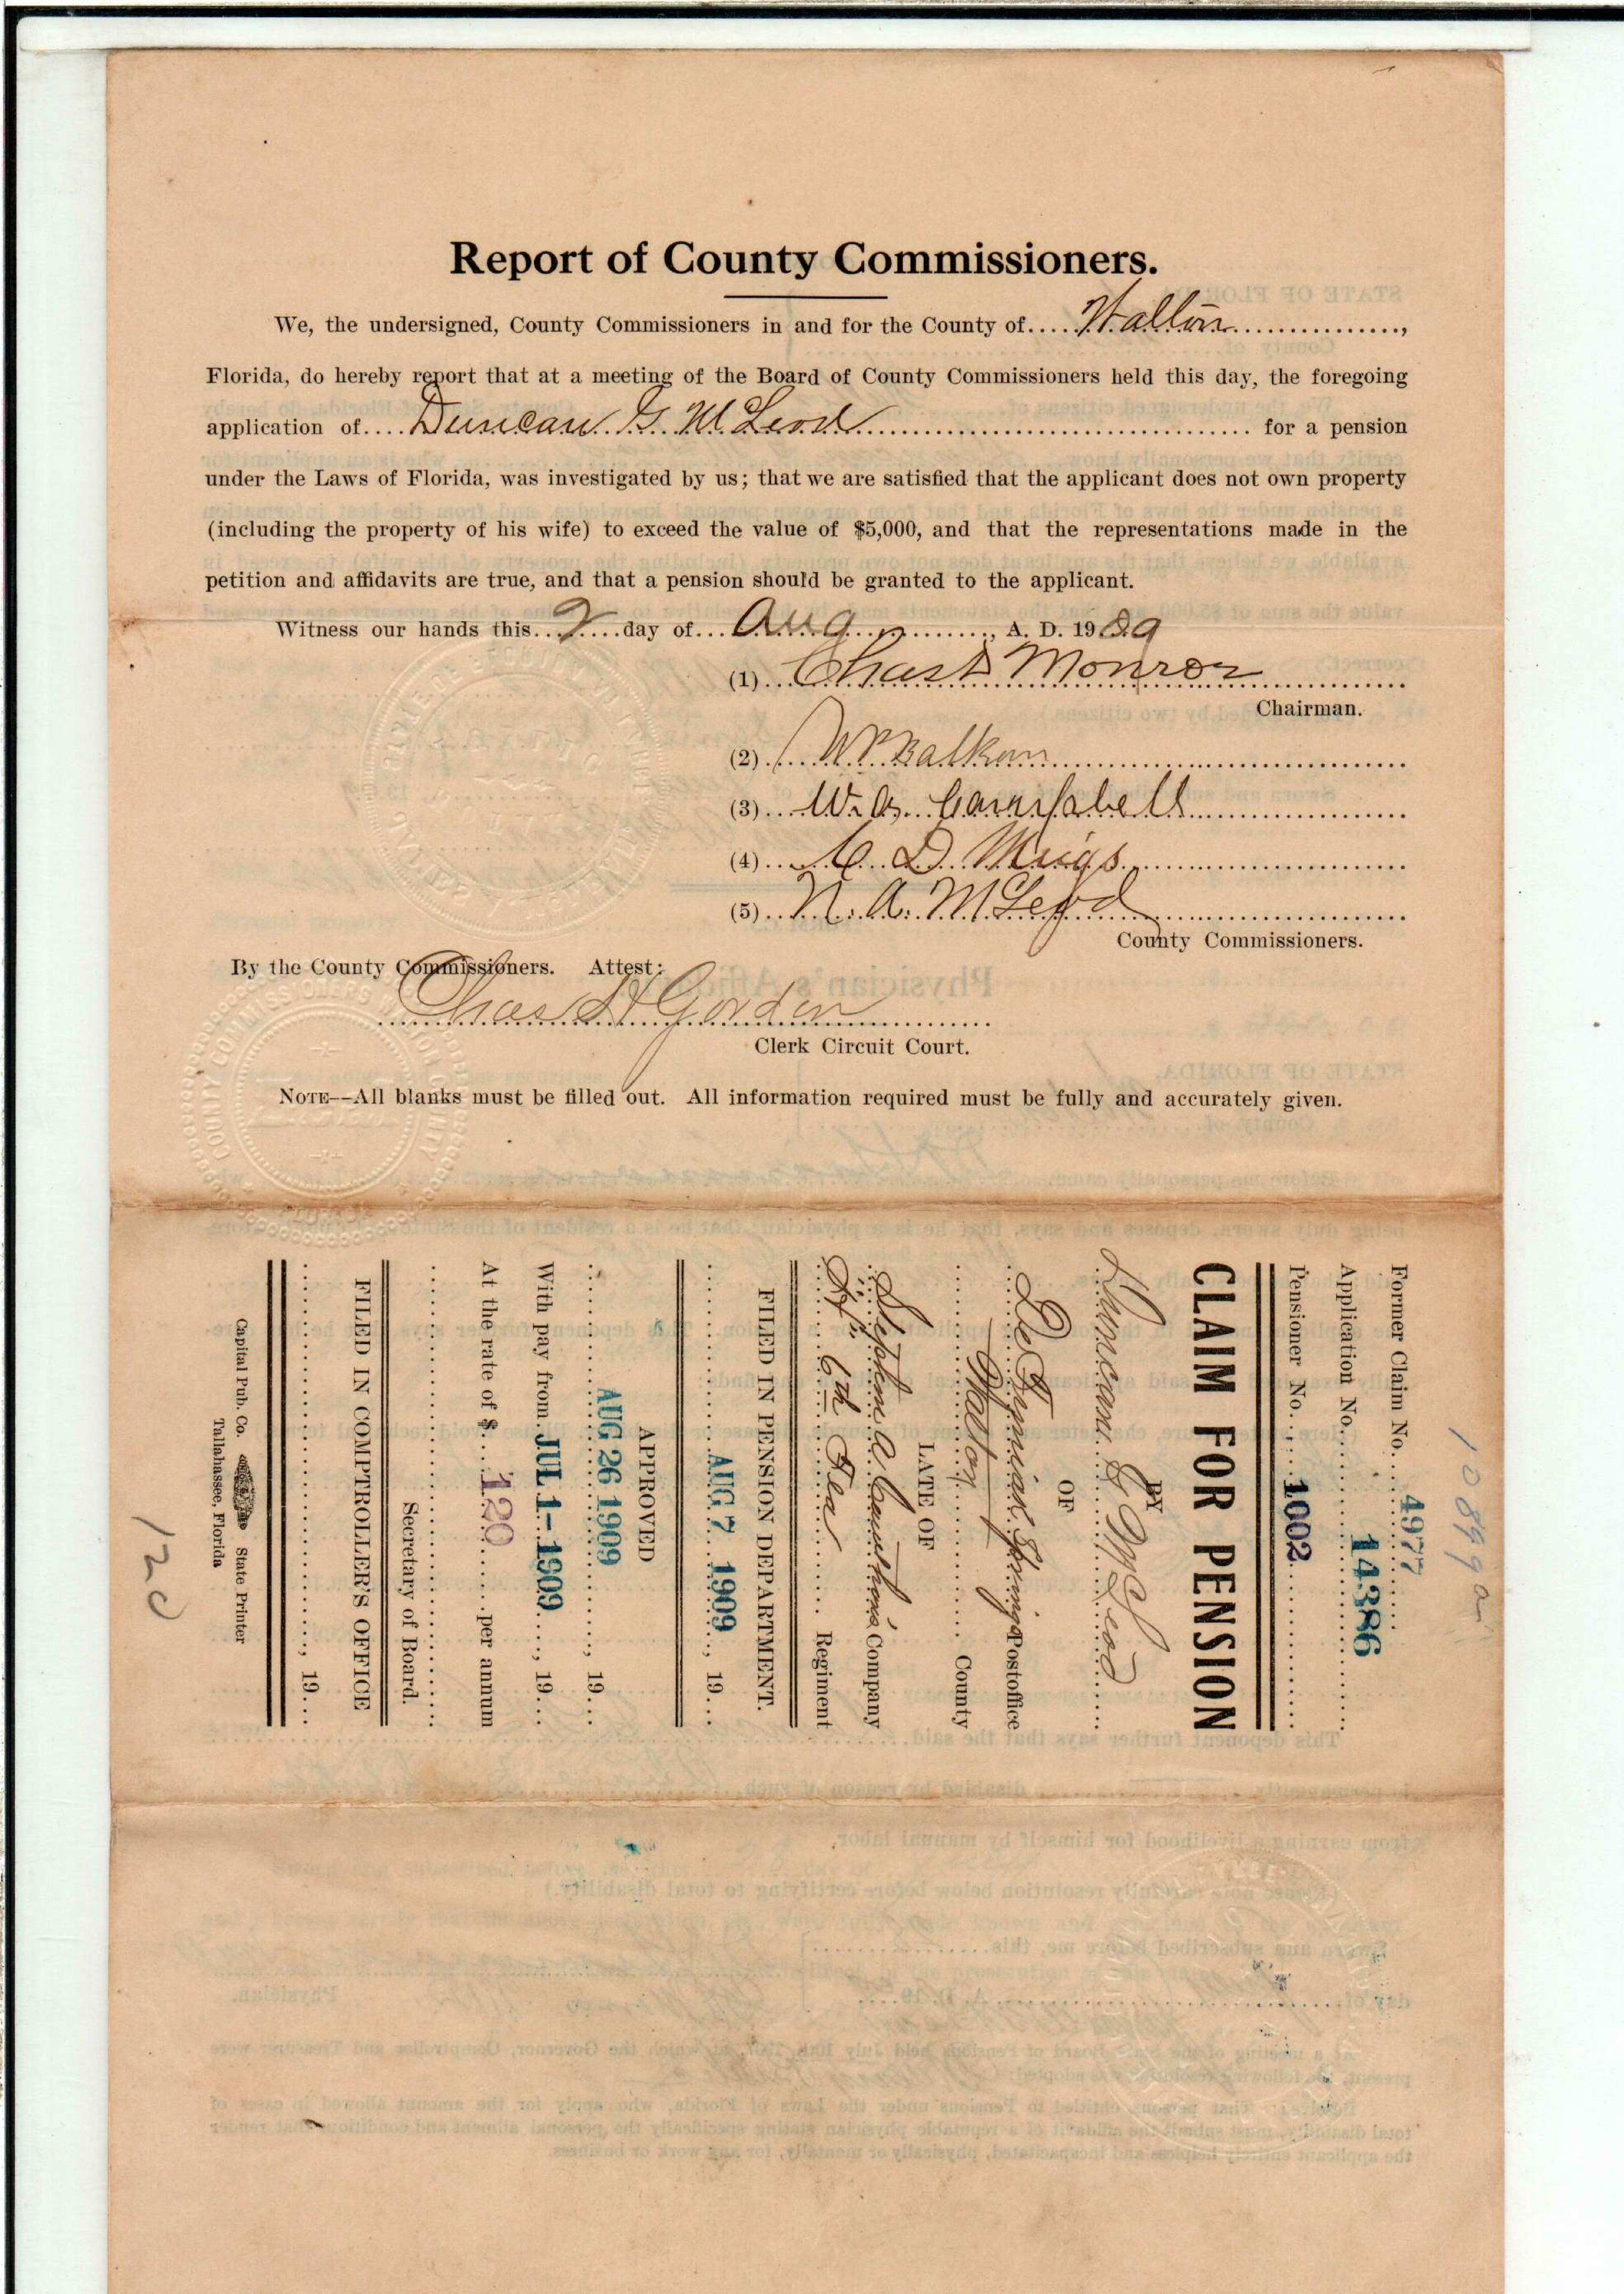 Report of County Commissioners.
We, the undersigned, County Commissioners in and for the County of.....Walton................,
Florida, do hereby report that at a meeting of the Board of County Commissioners held this day, the foregoing
application of....Duncan G. McLeod.................... for a pension
under the Laws of Florida, was investigated by us; that we are satisfied that the applicant does not own property
(including the property of his wife) to exceed the value of $5,000, and that the representations made in the
petition and affidavits are true, and that a pension should be granted to the applicant.
Witness our hands this...2....day of...Aug............, A. D. 1909
(1)...Chas D Monroe
Chairman.
(2)...W P Balkom
(3)...W. A. Campbell
(4)...C. D. Meigs
(5)...N. A. McLeod
County Commissioners.
By the County Commissioners. Attest:
Chas H Gordon
Clerk Circuit Court.
NOTE--All blanks must be filled out. All information required must be fully and accurately given.
COUNTY COMMISSIONERS WALTON COUNTY
10899
Former Claim No....4977
Application No....14386
Pensioner No....1002
CLAIM FOR PENSION
BY
Duncan G McLeod
OF
De Funiak Springs Postoffice
Walton County
LATE OF
Stephen A Cawthon's Company
"H" 6th Fla Regiment
FILED IN PENSION DEPARTMENT.
AUG 7 1909, 19...
APPROVED
AUG 26 1909, 19...
With pay from JUL 1-1909, 19...
At the rate of $...120......per annum
Secretary of Board.
FILED IN COMPTROLLER'S OFFICE
............, 19...
Capital Pub. Co. State Printer
Tallahassee, Florida
120